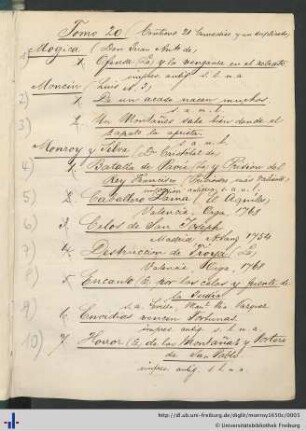 Tomo 20 (Contiene 20 Comedias y un duplicado)
1) Mogica (Don Juan Anto de)
1. Ofensa (La) y la venganza en el retrato
impres. antig. s. l. n. a.
Moncin (Luis A. J)
2) 1. De un acaso nacen muchos
s. a. n. l.
3) 2. Un Montañes sabe bien donde el
zapato le aprieta.
s. a. n. l.
Monroy y Silva (Dn Cristobal de)
4) 1. Batalla de Pavia (La) y Prision del
Rey Francisco
impresion antigua, s. a. n. l.
5) 2. Caballero Dama (El Aquiles)
Valencia, Orga, 1768
6) 3. Celos de San Joseph
Madrid 1754
7) 4. Destruccion de Troya (La)
Valencia Orga, 1768
8) 5. Encanto (El) por los celos y fuente de
la Judia
s. a. Sevilla, Manl Nic. Vazquez
9) 6. Envidias vencen Fortunas.
impres. antig. s. l. n. a.
10) 7. Horror (El) de las Montañas y Portero
de San Pablo
impres. antig. s. l. n. a.
http://dl.ub.uni-freiburg.de/diglit/monroy1650c/0003
© Universitätsbibliothek Freiburg